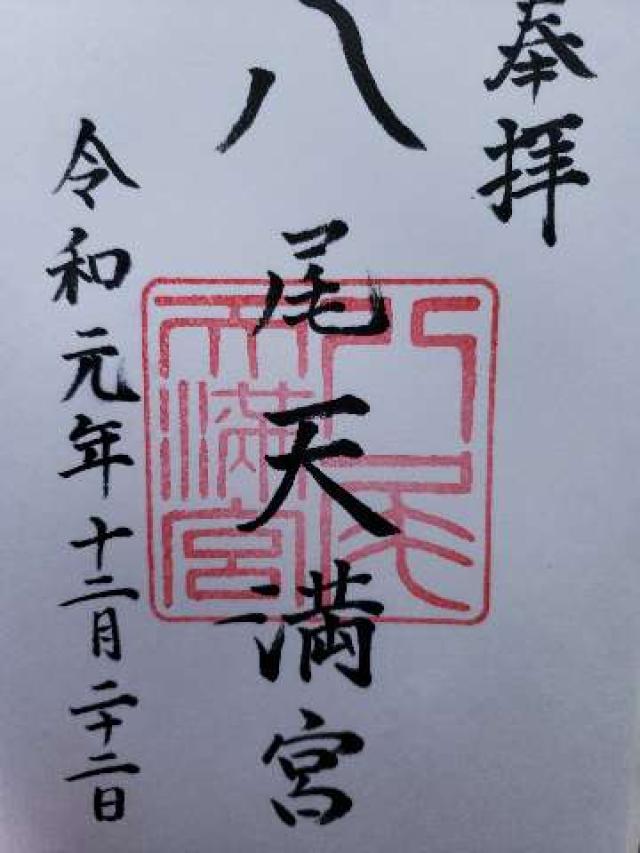 奉拝
八尾天満宮
令和元年十二月二十二日
八尾
天満宮